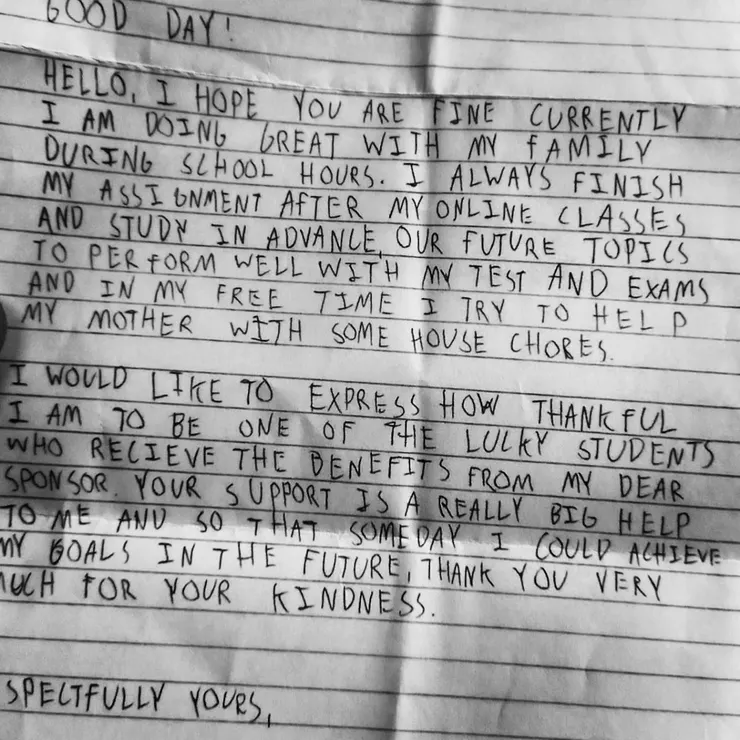 GOOD DAY!
HELLO, I HOPE YOU ARE FINE CURRENTLY
I AM DOING GREAT WITH MY FAMILY
DURING SCHOOL HOURS. I ALWAYS FINISH
MY ASSIGNMENT AFTER MY ONLINE CLASSES
AND STUDY IN ADVANCE, OUR FUTURE TOPICS
TO PERFORM WELL WITH MY TEST AND EXAMS
AND IN MY FREE TIME I TRY TO HELP
MY MOTHER WITH SOME HOUSE CHORES.
I WOULD LIKE TO EXPRESS HOW THANKFUL
I AM TO BE ONE OF THE LUCKY STUDENTS
WHO RECIEVE THE BENEFITS FROM MY DEAR
SPONSOR. YOUR SUPPORT IS A REALLY BIG HELP
TO ME AND SO THAT SOMEDAY I COULD ACHIEVE
MY GOALS IN THE FUTURE, THANK YOU VERY
MUCH FOR YOUR KINDNESS.
SPECTFULLY YOURS,